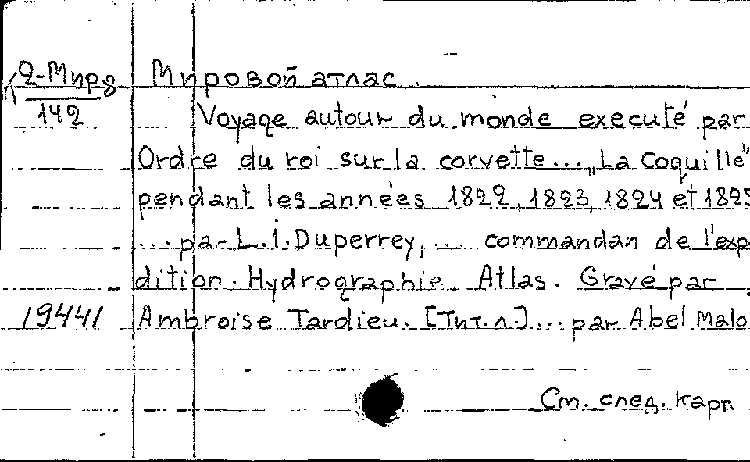 2-Мир8 Мировой атлас.
142 Voyage autour du monde executé par
Ordre du roi sur la corvette... "La Coquille"
pendant les années 1822, 1823, 1824 et 1825
... par L.I. Duperrey, ... commandan de l'exp
dition. Hydrographie. Atlas. Gravé par
19441 Ambroise Tardieu. [Тит. л.] ... par Abel Malo
См. след. карт.